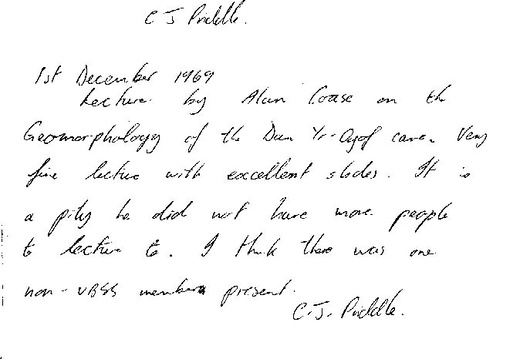 C J Priddle.
1st December 1969
Lecture by Alan Coase on the
Geomorphology of the Dan Yr-Ogof cave. Very
fine lecture with excellent slides. It is
a pity he did not have more people
to lecture to. I think there was one
non-UBSS member present.
C.J. Priddle.